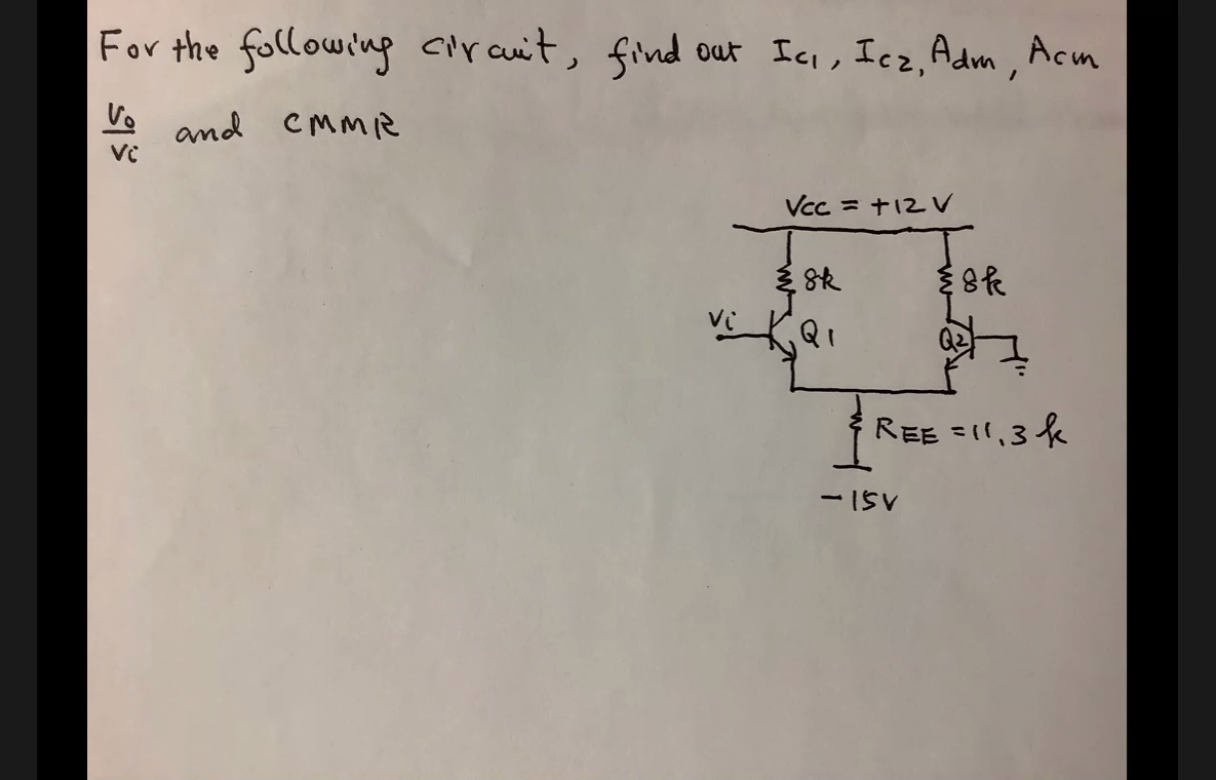 For the following circuit, find out Ic1, Ic2, Adm, Acm
Vo/Vi and CMMR
Vcc = +12 V
8k
8k
Vi
Q1
Q2
REE = 11.3 k
-15V